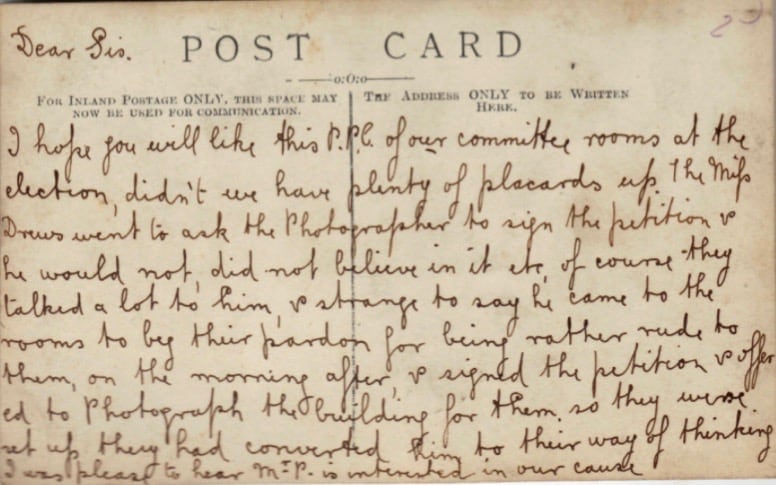 Dear Sis.
POST CARD
FOR INLAND POSTAGE ONLY, THIS SPACE MAY
NOW BE USED FOR COMMUNICATION.
THE ADDRESS ONLY TO BE WRITTEN
HERE.
I hope you will like this P.P.C. of our committee rooms at the
election, didn't we have plenty of placards up. The Miss
Drews went to ask the Photographer to sign the petition &
he would not, did not believe in it etc, of course they
talked a lot to him, & strange to say he came to the
rooms to beg their pardon for being rather rude to
them, on the morning after, & signed the petition & offer
ed to Photograph the building for them, so they were
set up they had converted him to their way of thinking
I was please to hear Mr P. is interested in our cause